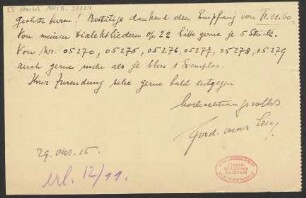 Geehrte Herren! Bestätige dankend den Empfang von
Von meinen Dialektliedern op 22 bitte gerne je 5 Stück.
Von No. 05270, 05275, 05276, 05277, 05278, 05279
auch gerne mehr als je bloss 1 Exemplar.
Ihrer Zusendung sehe gerne bald entgegen
hochachtungsvollst
29. Okt. 15.
erl. 12/11.